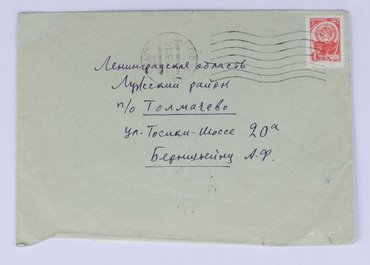 Ленинградская область
Лужский район
п/о Толмачево
ул. Тосики-Шоссе 20а
Бернштейну А.Ф.